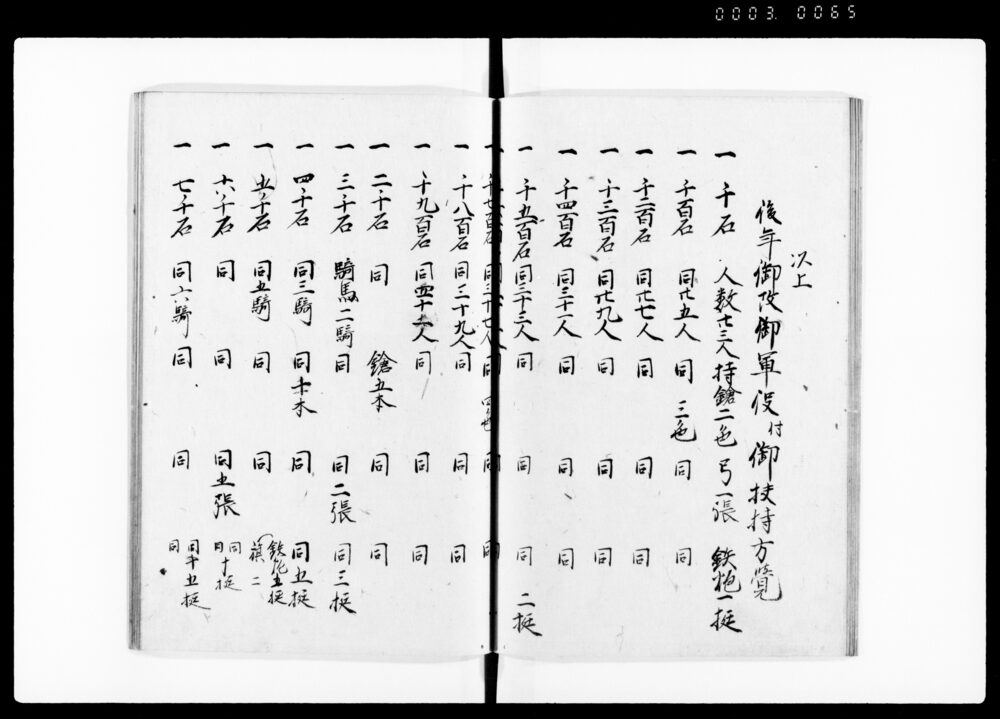 0003. 0065
以上
後年御改御軍役付御扶持方覚
一 千石 人数廿三人 持鎗二色 弓一張 鉄炮一挺
一 千百石 同廿五人 同三色 同 同
一 千二百石 同廿七人 同 同 同
一 千三百石 同廿九人 同 同 同
一 千四百石 同三十一人 同 同 同
一 千五百石 同三十三人 同 同 同二挺
一 千七百石 同三十七人 同四色 同 同
一 千八百石 同三十九人 同 同 同
一 千九百石 同四十人 同 同 同
一 二千石 同 鎗五本 同 同
一 三千石 騎馬二騎 同 同二張 同三挺
一 四千石 同三騎 同十本 同 同五挺
一 五千石 同五騎 同 同 鉄炮五挺 旗二
一 六千石 同 同 同五張 同 同十挺
一 七千石 同六騎 同 同 同十五挺 同